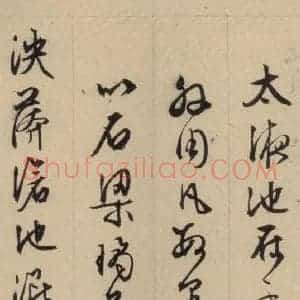 太液池在
外周凡
以石梁
泱漭滄池
Shufaziliao.com